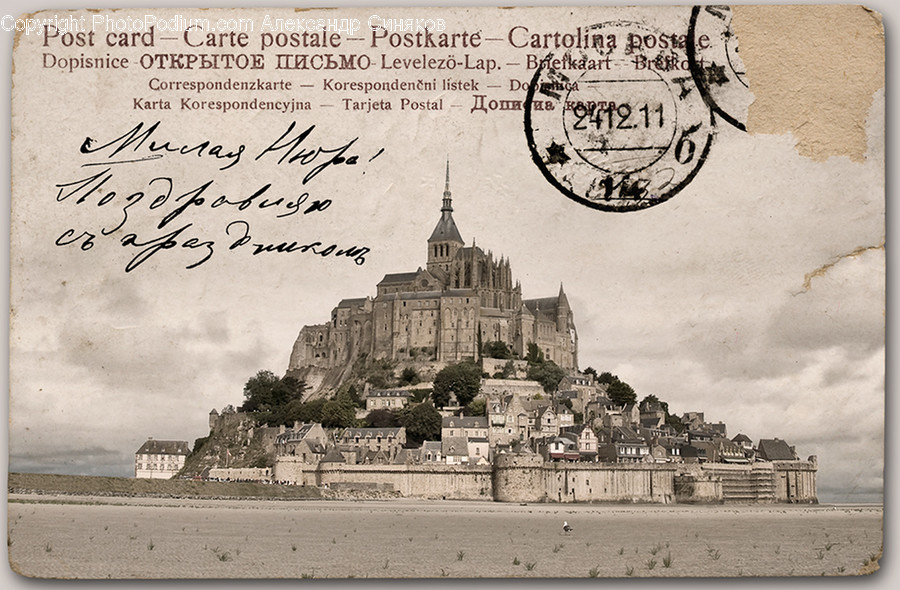 Copyright PhotoPodium.com Александр Синяков
Post card – Carte postale – Postkarte – Cartolina postale
Dopisnice ОТКРЫТОЕ ПИСЬМО Levelezö-Lap. – Briefkaart – Brefkort
Correspondenzkarte – Korespondenční listek – Dopisnica
Karta Korespondencyjna – Tarjeta Postal – Дописна карта
24.12.11
б
Милая Нюра!
Поздравляю
съ праздникомъ